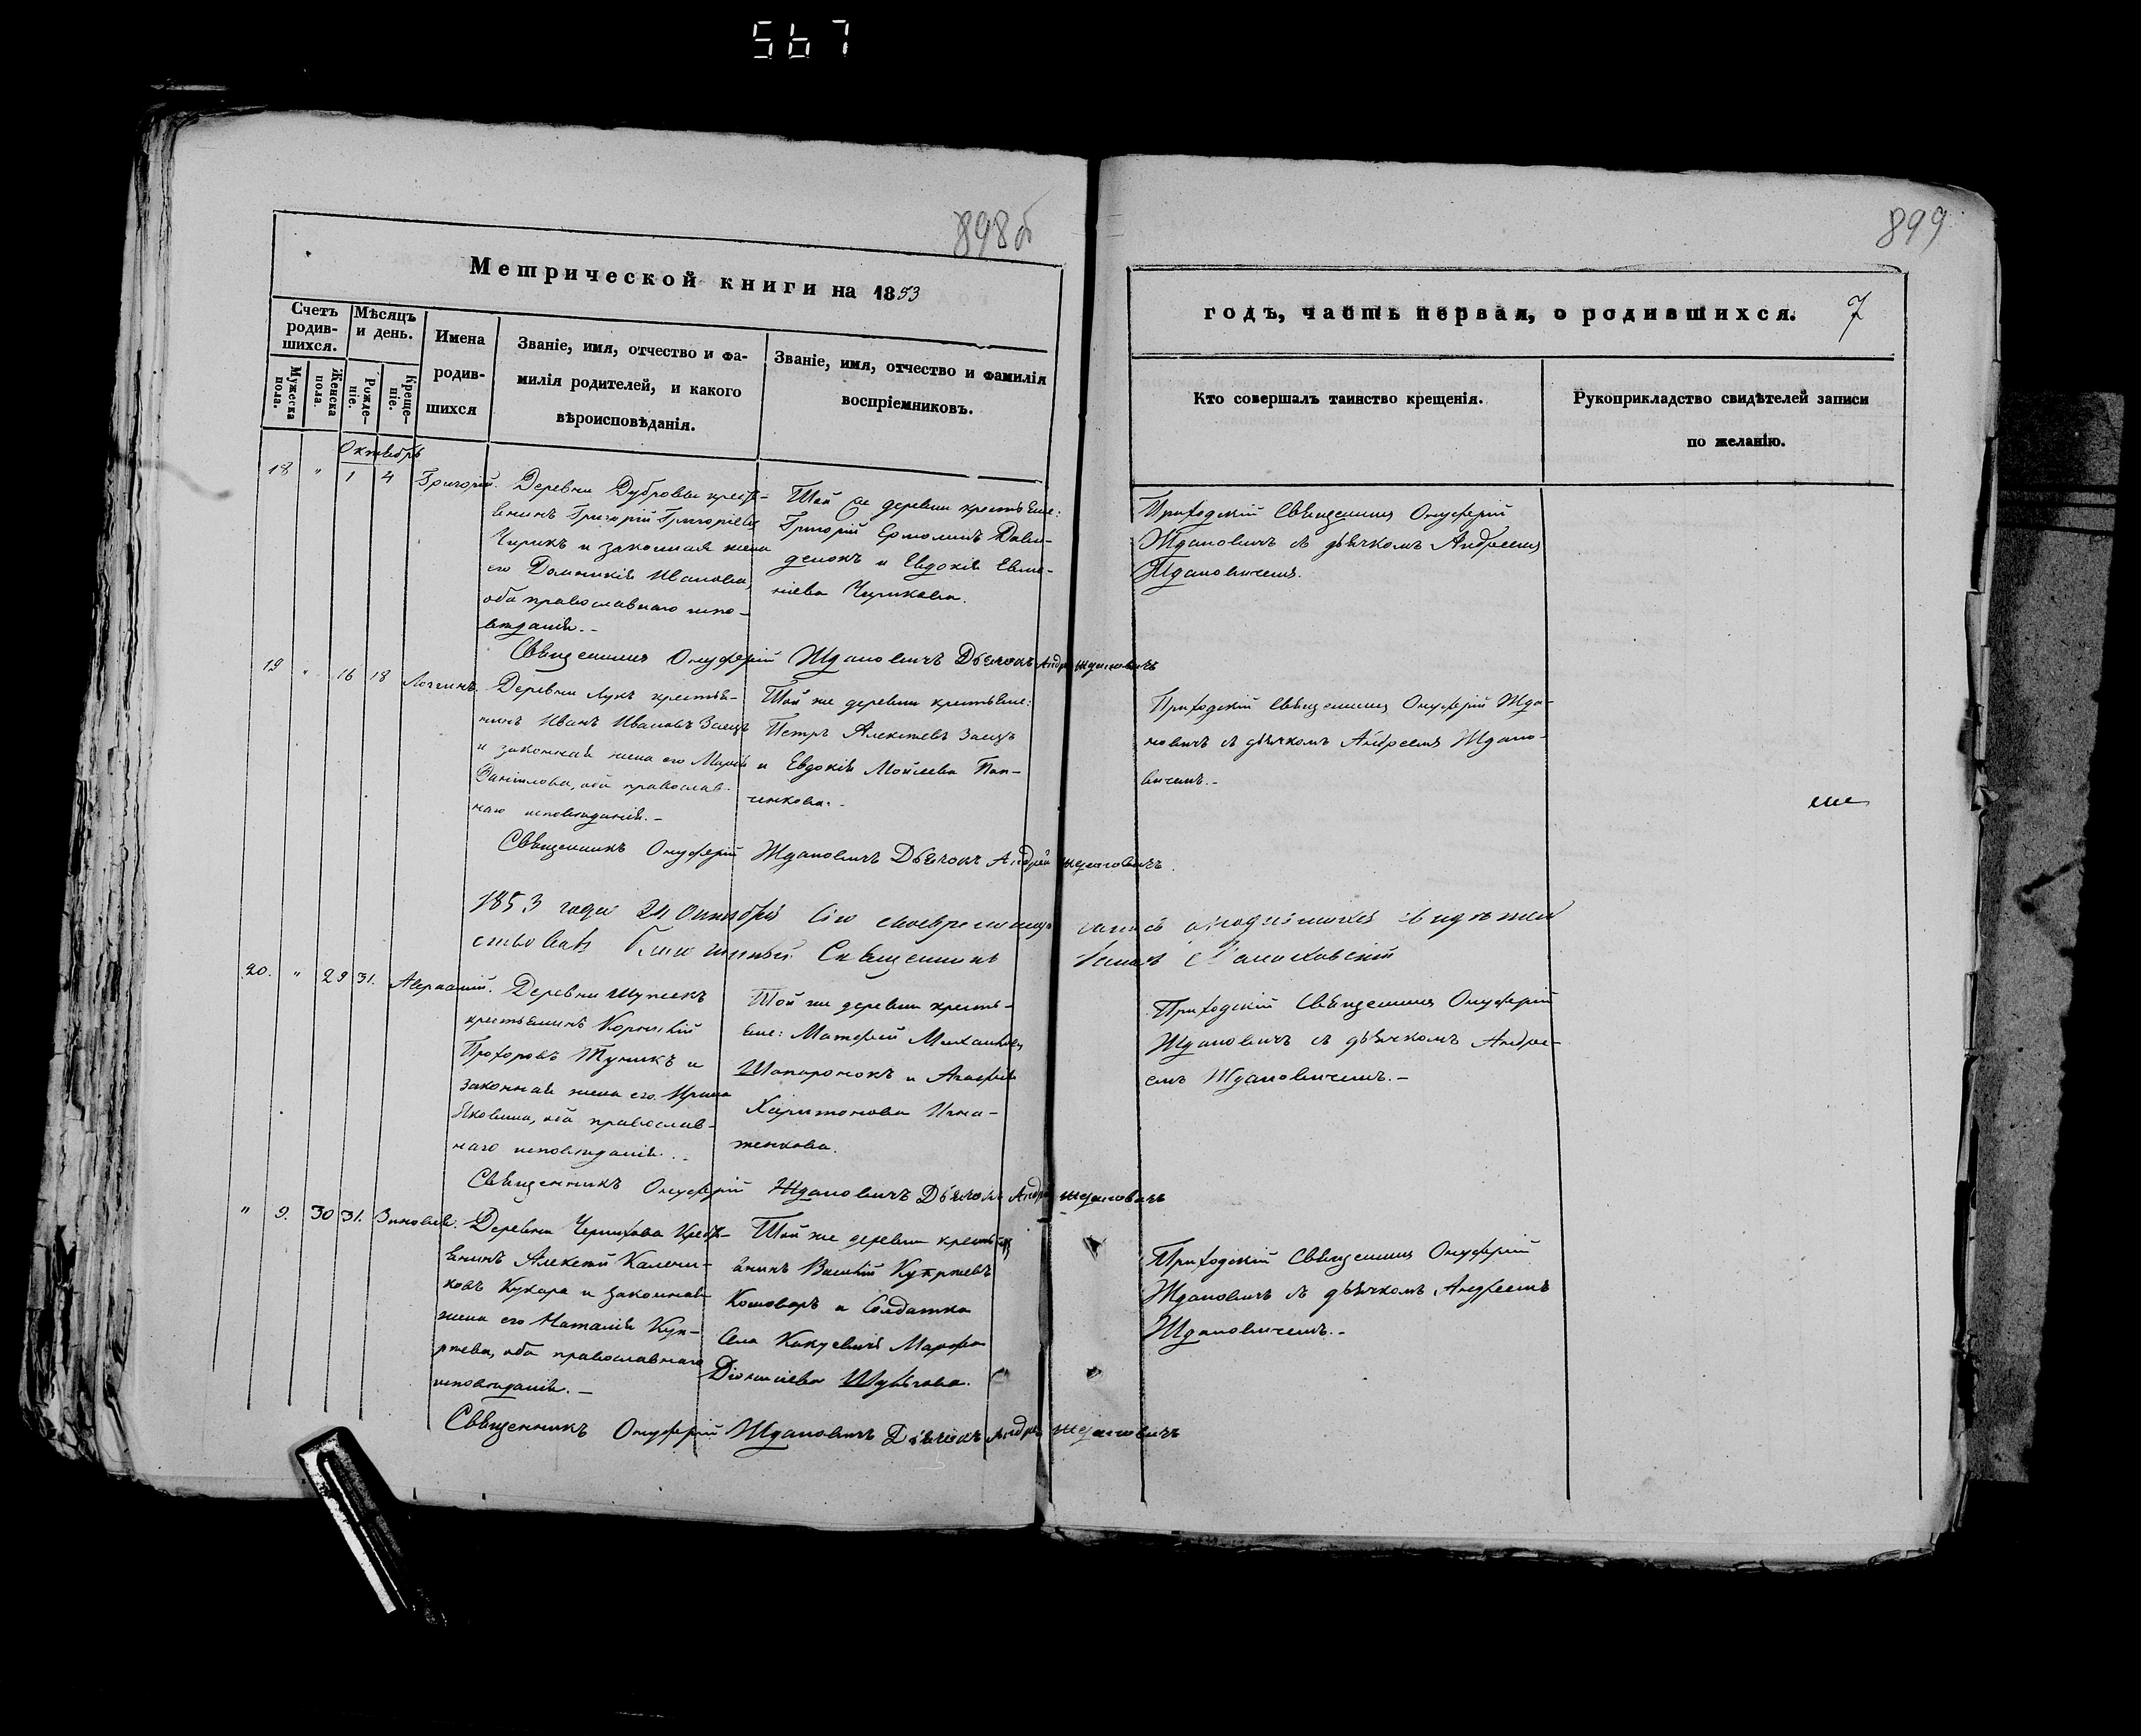 567
898б
899
Метрической книги на 1853
годъ, часть первая, о родившихся. 7
Счетъ родив-шихся.
Мѣсяцъ и день.
Имена родив-шихся
Званіе, имя, отчество и фа-
милія родителей, и какого
вѣроисповѣданія.
Званіе, имя, отчество и фамилія
воспріемниковъ.
Кто совершалъ таинство крещенія.
Рукоприкладство свидѣтелей записи
по желанію.
Мужеска пола.
Женска пола.
Рожде-ніе.
Креще-ніе.
Октябрь
18 " 1 4 Григорій.
Деревни Дубровы кресть-
янинъ Григорій Григорьевъ
Чирикъ и законная жена
его Домникія Иванова,
оба православнаго испо-
вѣданія.-
Той же деревни крестьяне:
Григорій Ермолинъ Дави-
денокъ и Евдокія
Чирикова.
Приходскій Священникъ Онуфрій
Ждановичъ съ дьячкомъ Андреемъ
Ждановичемъ.
Священникъ Онуфрій Ждановичъ Дьячокъ Андрей Ждановичъ
19 " 16 18 Логгинъ.
Деревни Лукъ крестья-
нинъ Иванъ Ивановъ Заецъ
и законная жена его Марія
Данилова, оба православ-
наго исповѣданія.-
Той же деревни крестьяне:
Петръ Алексѣевъ Заецъ
и Евдокія Мойсеева Пан-
ченкова.-
Приходскій Священникъ Онуфрій Жда-
новичъ съ дьячкомъ Андреемъ Ждано-
вичемъ.-
Священникъ Онуфрій Ждановичъ Дьячокъ Андрей Ждановичъ.
1853 года 24 Октября Сію
Благочинный Священникъ
20. " 29 31. Аврамій.
Деревни
крестьянинъ Корнилій
Прохоровъ Туникъ и
законная жена его Ирина
Яковлева, оба православ-
наго исповѣданія.-
Той же деревни кресть-
яне: Матфей Михайловъ
Шапоронокъ и Агафія
Харитонова Игна-
тенкова.
Приходскій Священникъ Онуфрій
Ждановичъ съ дьячкомъ Андре-
емъ Ждановичемъ.-
Священникъ Онуфрій Ждановичъ Дьячокъ Андрей Ждановичъ
" 9. 30 31. Зиновія.
Деревни Кресть-
янинъ Алексѣй Калени-
ковъ Кухаръ и законная
жена его Наталія Куп-
рѣева, оба православнаго
исповѣданія.-
Той же деревни кресть-
янинъ Василій Купрѣевъ
Коноваръ и Солдатка
Села Марфа
Діонисіева
Приходскій Священникъ Онуфрій
Ждановичъ съ дьячкомъ Андреемъ
Ждановичемъ.-
Священникъ Онуфрій Ждановичъ Дьячокъ Андрей Ждановичъ